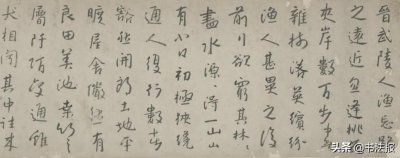 晉武陵人漁忘路
之遠近忽逢桃
夾岸數百步中
雜樹落英繽紛
漁人甚異之復
前行欲窮其林
盡水源得一山山
有小口初極狹纔
通人復行數十步
豁然開朗土地平
曠屋舍儼然有
良田美池桑竹之
屬阡陌交通雞
犬相聞其中往来
头条 @书法报